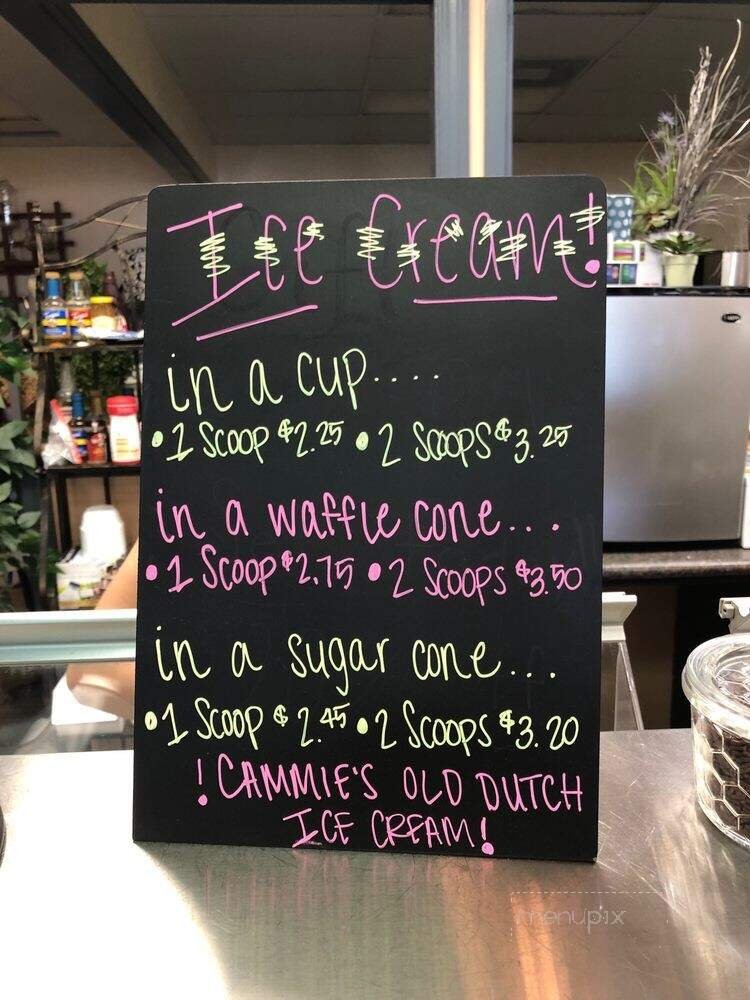 Ice Cream!
in a cup....
• 1 Scoop $2.25 • 2 Scoops $3.25
in a waffle cone...
• 1 Scoop $2.75 • 2 Scoops $3.50
in a sugar cone...
• 1 Scoop $2.45 • 2 Scoops $3.20
! CAMMIE'S OLD DUTCH
ICE CREAM!
menupix